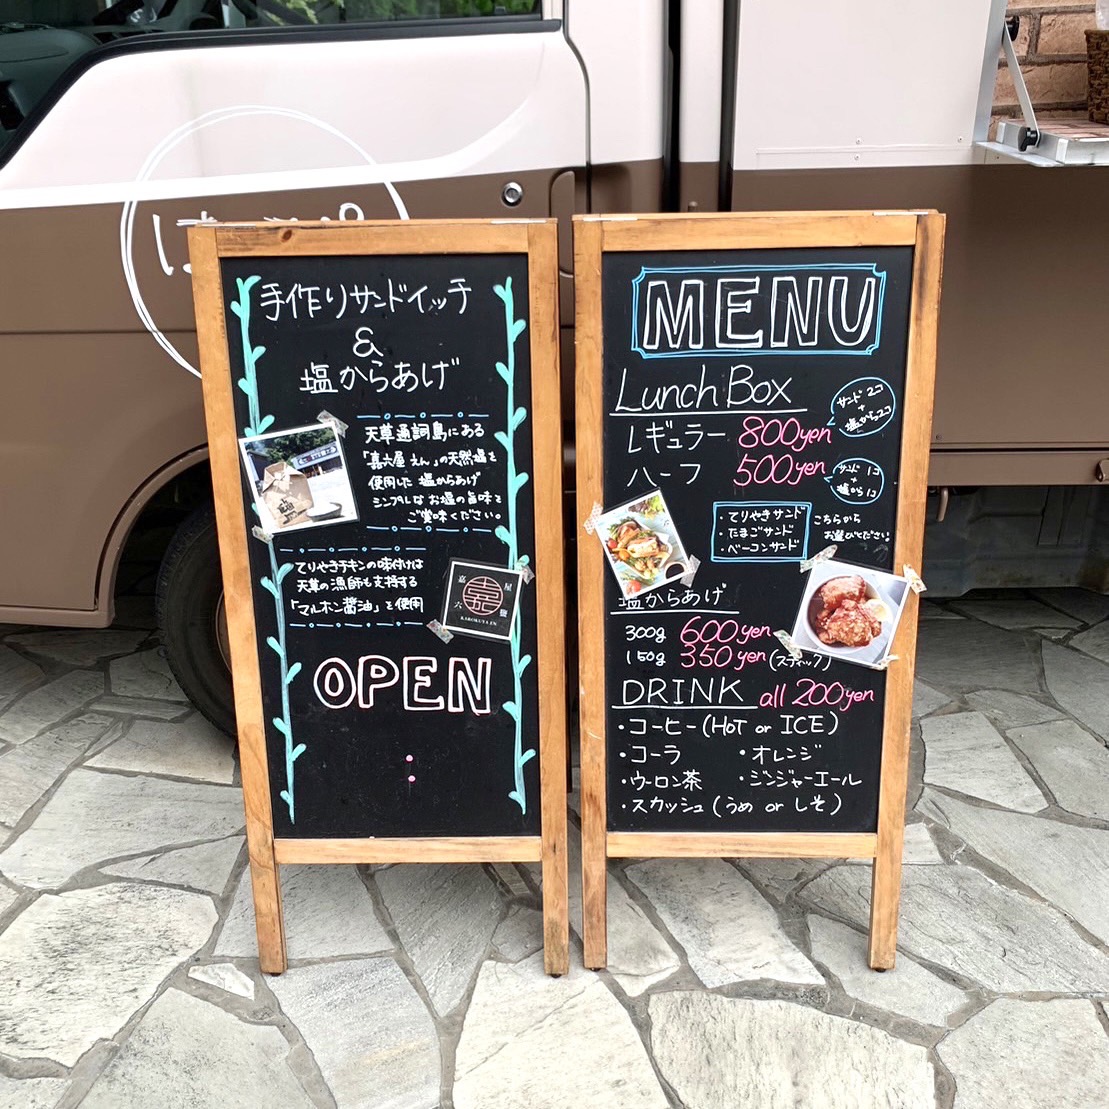 手作りサンドイッチ
&
塩からあげ
天草通詞島にある
「嘉六屋 えん」の天然塩を
使用した 塩からあげ
シンプルな お塩の旨味を
ご賞味ください。
てりやきチキンの味付けは
天草の漁師も支持する
「マルホン醤油」を使用
嘉 屋
六 鹽
KAROKUYA EN
OPEN
:
MENU
Lunch Box
レギュラー 800yen
サンド 2コ
+
塩から2コ
ハーフ 500yen
サンド 1コ
+
塩から1コ
・てりやきサンド
・たまごサンド
・ベーコンサンド
こちらから
お選びください。
塩からあげ
300g 600yen
150g 350yen (スティック)
DRINK all 200yen
・コーヒー(HoT or ICE)
・コーラ ・オレンジ
・ウーロン茶 ・ジンジャーエール
・スカッシュ(うめ or しそ)